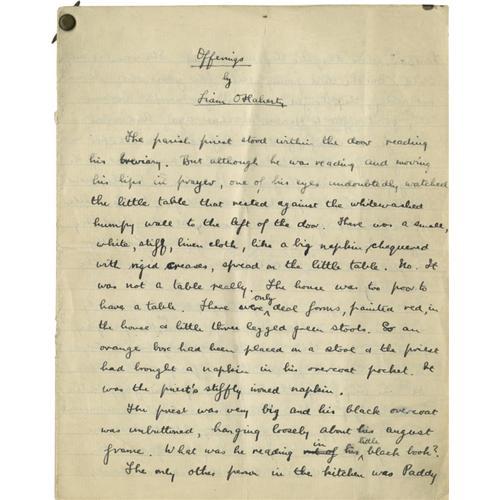 Offerings
by
Liam O'Flaherty
The parish priest stood within the door reading
his breviary. But although he was reading and moving
his lips in prayer, one of his eyes undoubtedly watched
the little table that rested against the whitewashed
humpy wall to the left of the door. There was a small,
white, stiff, linen cloth, like a big napkin, chequered
with rigid creases, spread on the little table. No. It
was not a table really. The house was too poor to
have a table. There were only deal forms, painted red, in
the house & little three legged green stools. So an
orange box had been placed on a stool & the priest
had brought a napkin in his overcoat pocket. It
was the priest's stiffly ironed napkin.
The priest was very big and his black overcoat
was unbuttoned, hanging loosely about his august
frame. What was he reading in his little black book?
The only other person in the kitchen was Paddy